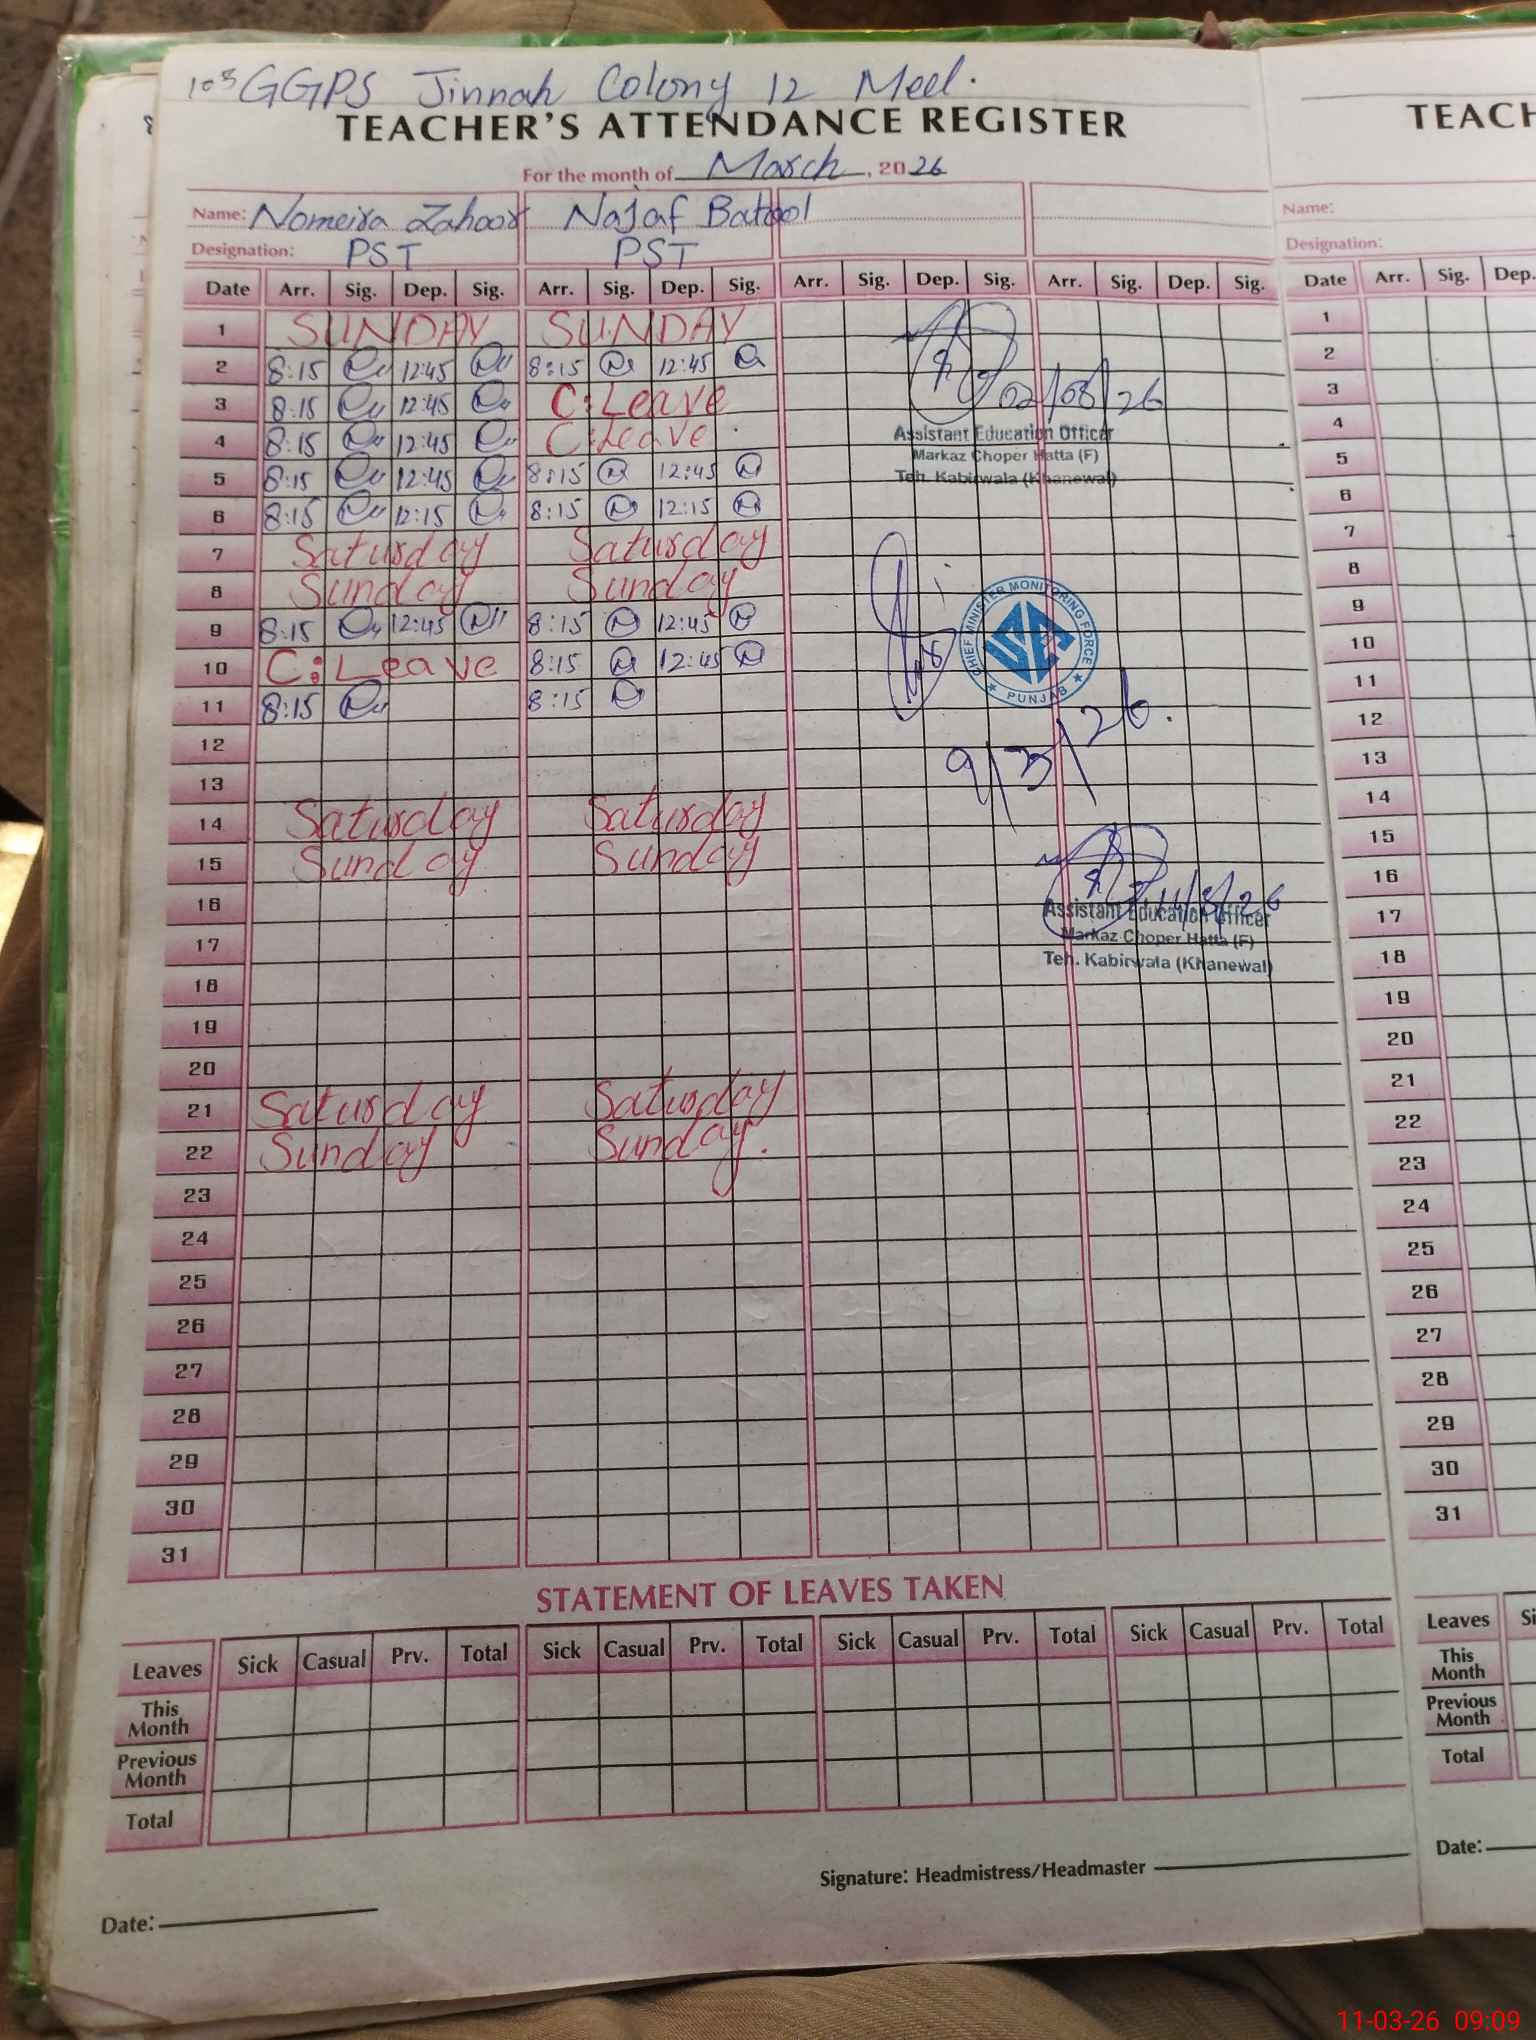 105 GGPS Jinnah Colony 12 Meel.
TEACHER'S ATTENDANCE REGISTER
For the month of March, 2026
Name: Nomeira Zahoor Najaf Batool
Designation: PST PST
Date Arr. Sig. Dep. Sig. Arr. Sig. Dep. Sig. Arr. Sig. Dep. Sig. Arr. Sig. Dep. Sig.
1 SUNDAY SUNDAY
2 8:15 12:45 8:15 12:45
3 8:15 12:45 C:Leave
4 8:15 12:45 C:Leave
02/03/26
Assistant Education Officer
Markaz Choper Hatta (F)
Teh. Kabirwala (Khanewal)
5 8:15 12:45 8:15 12:45
6 8:15 12:15 8:15 12:15
7 Saturday Saturday
8 Sunday Sunday
9 8:15 12:45 8:15 12:45
10 C:Leave 8:15 12:45
11 8:15 8:15
CHIEF MINISTER MONITORING FORCE
PUNJAB
9/3/26.
12
13
14 Saturday Saturday
15 Sunday Sunday
16
17
18
11/3/26
Assistant Education Officer
Markaz Choper Hatta (F)
Teh. Kabirwala (Khanewal)
19
20
21 Saturday Saturday
22 Sunday Sunday.
23
24
25
26
27
28
29
30
31
STATEMENT OF LEAVES TAKEN
Leaves Sick Casual Prv. Total Sick Casual Prv. Total Sick Casual Prv. Total Sick Casual Prv. Total
This Month
Previous Month
Total
Signature: Headmistress/Headmaster
Date:
TEACH
Name:
Designation:
Date Arr. Sig. Dep.
1
2
3
4
5
6
7
8
9
10
11
12
13
14
15
16
17
18
19
20
21
22
23
24
25
26
27
28
29
30
31
Leaves Si
This Month
Previous Month
Total
Date:
11-03-26 09:09